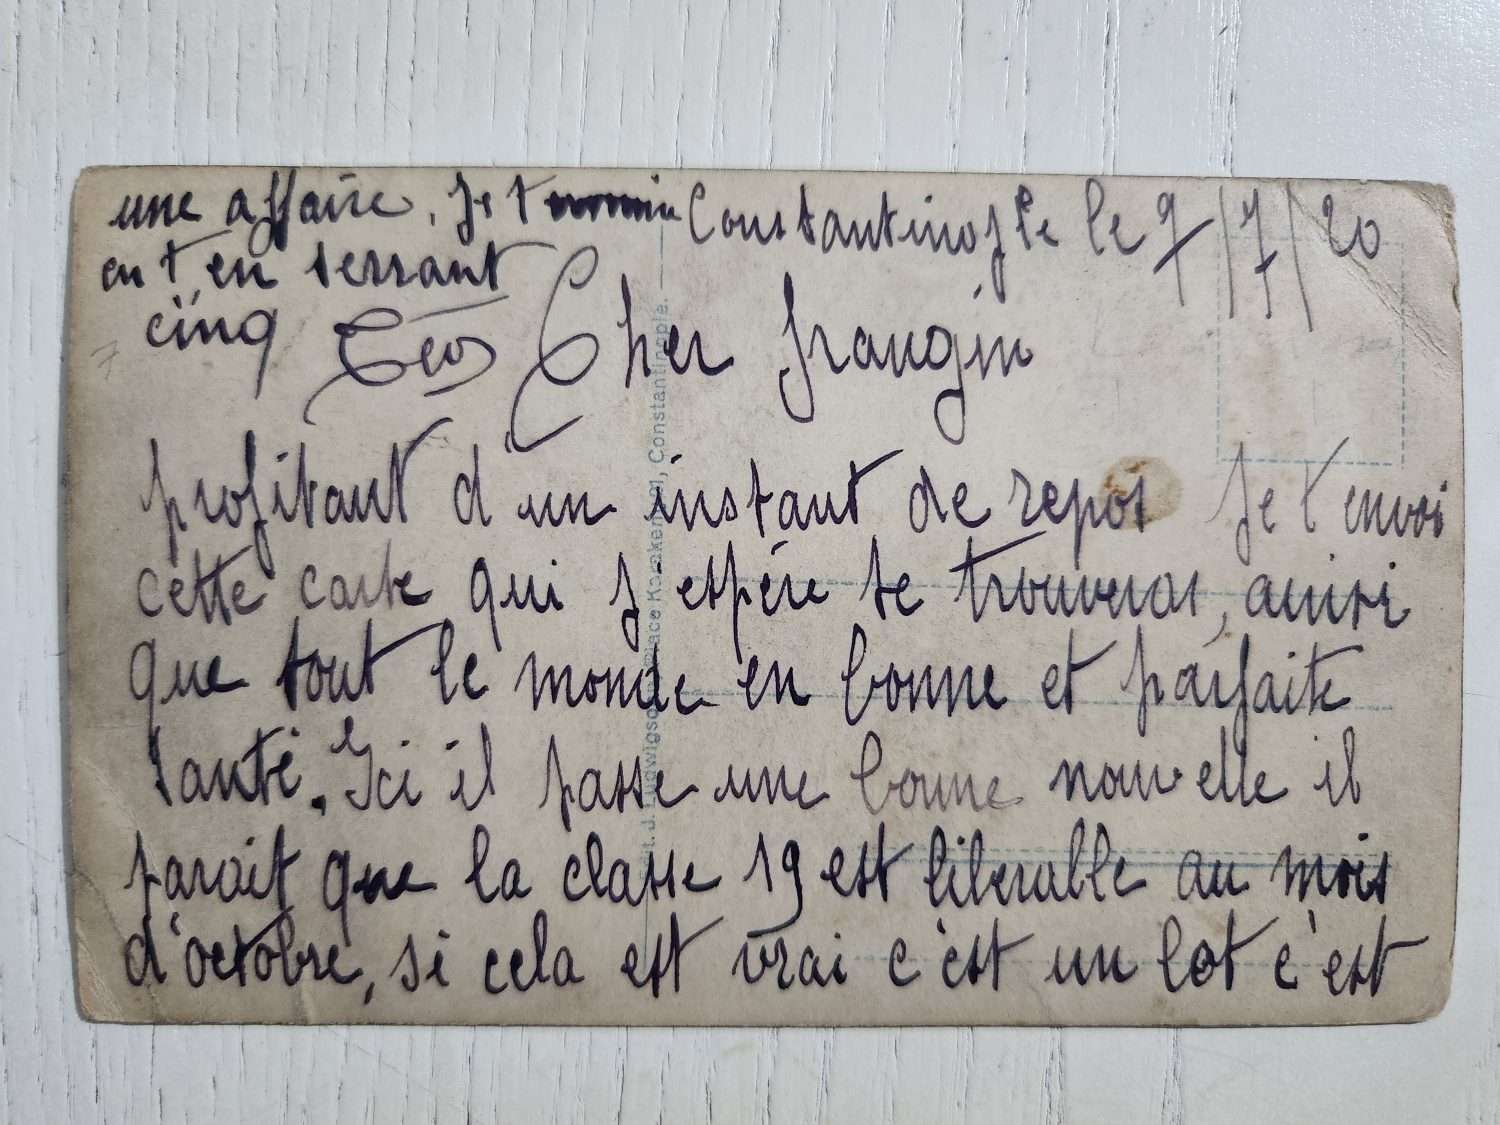 une affaire. Je termine
en t'en serrant
cinq Géo
Constantinople le 9/7/20
Cher frangin
profitant d'un instant de repos je t envoi
cette carte qui j espère te trouveras, ainsi
que tout le monde en bonne et parfaite
santé. Ici il passe une bonne nouvelle il
parait que la classe 19 est liberable au mois
d'octobre, si cela est vrai c'est un lot c'est
J. Ludwigsohn, Constantinople.